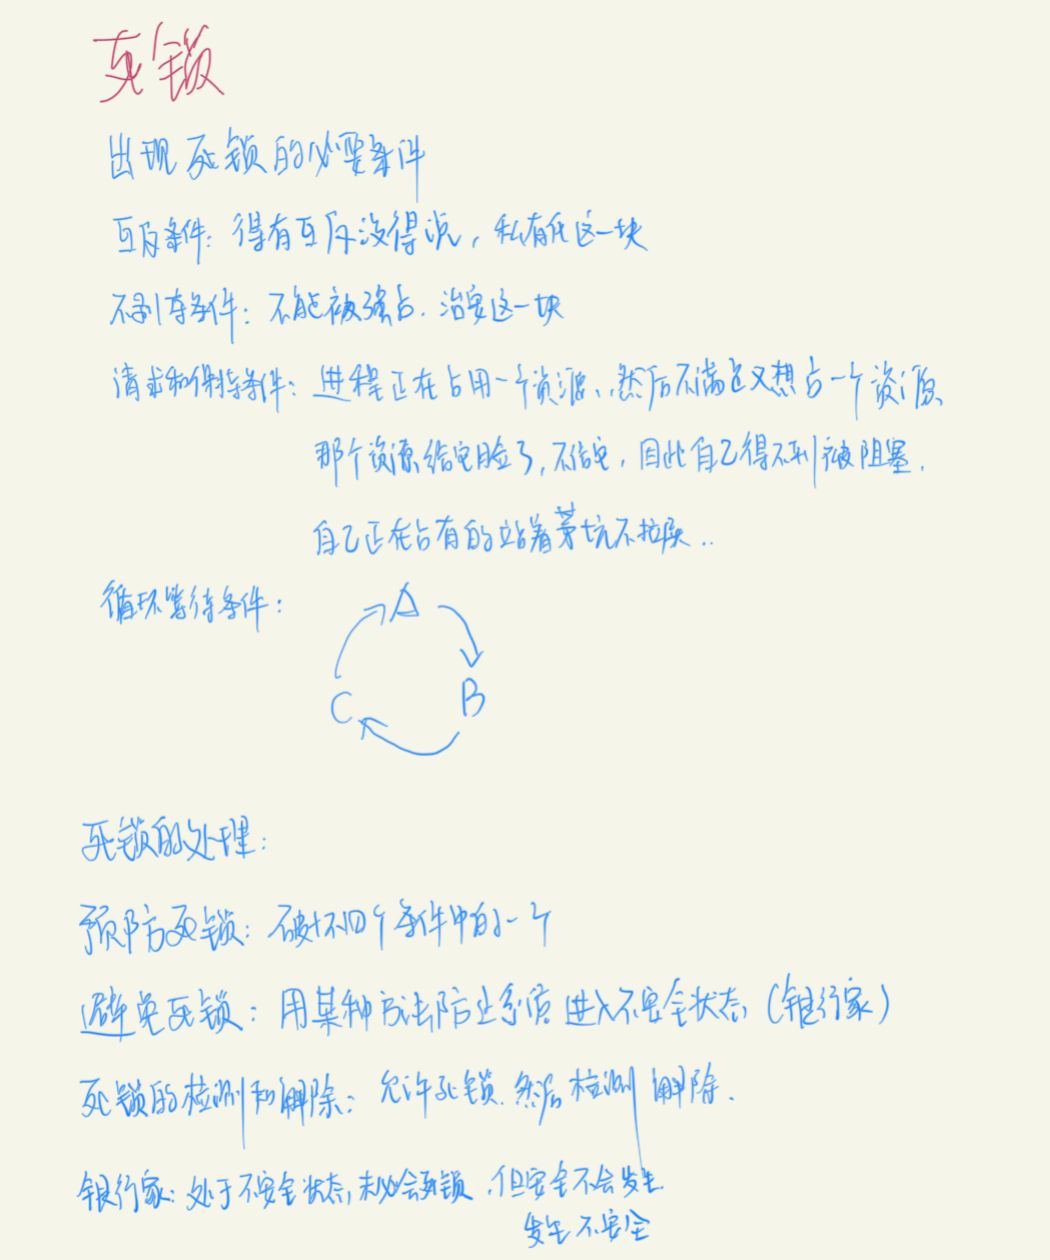 死锁
出现死锁的必要条件
互斥条件：得有互斥没得说，私有化这一块
不剥夺条件：不能被强占．治安这一块
请求和保持条件：进程正在占用一个资源，然后不满足又想占一个资源
那个资源给它脸了，不给它，因此自己得不到被阻塞．
自己正在占有的站着茅坑不拉屎..
循环等待条件：
A
C B
死锁的处理：
预防死锁：破坏四个条件中的一个
避免死锁：用某种方法防止系统进入不安全状态（银行家）
死锁的检测和解除：允许死锁．然后检测 解除．
银行家：处于不安全状态，未必会死锁．但安全不会发生
发生不安全